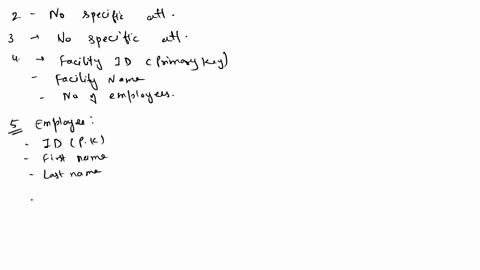 2. - No specific att.
3 → No specific att.
4. → Facility ID (Primary key)
- Facility Name
- No of employees.
5 Employee:
- ID (P.K)
- First name
- Last name